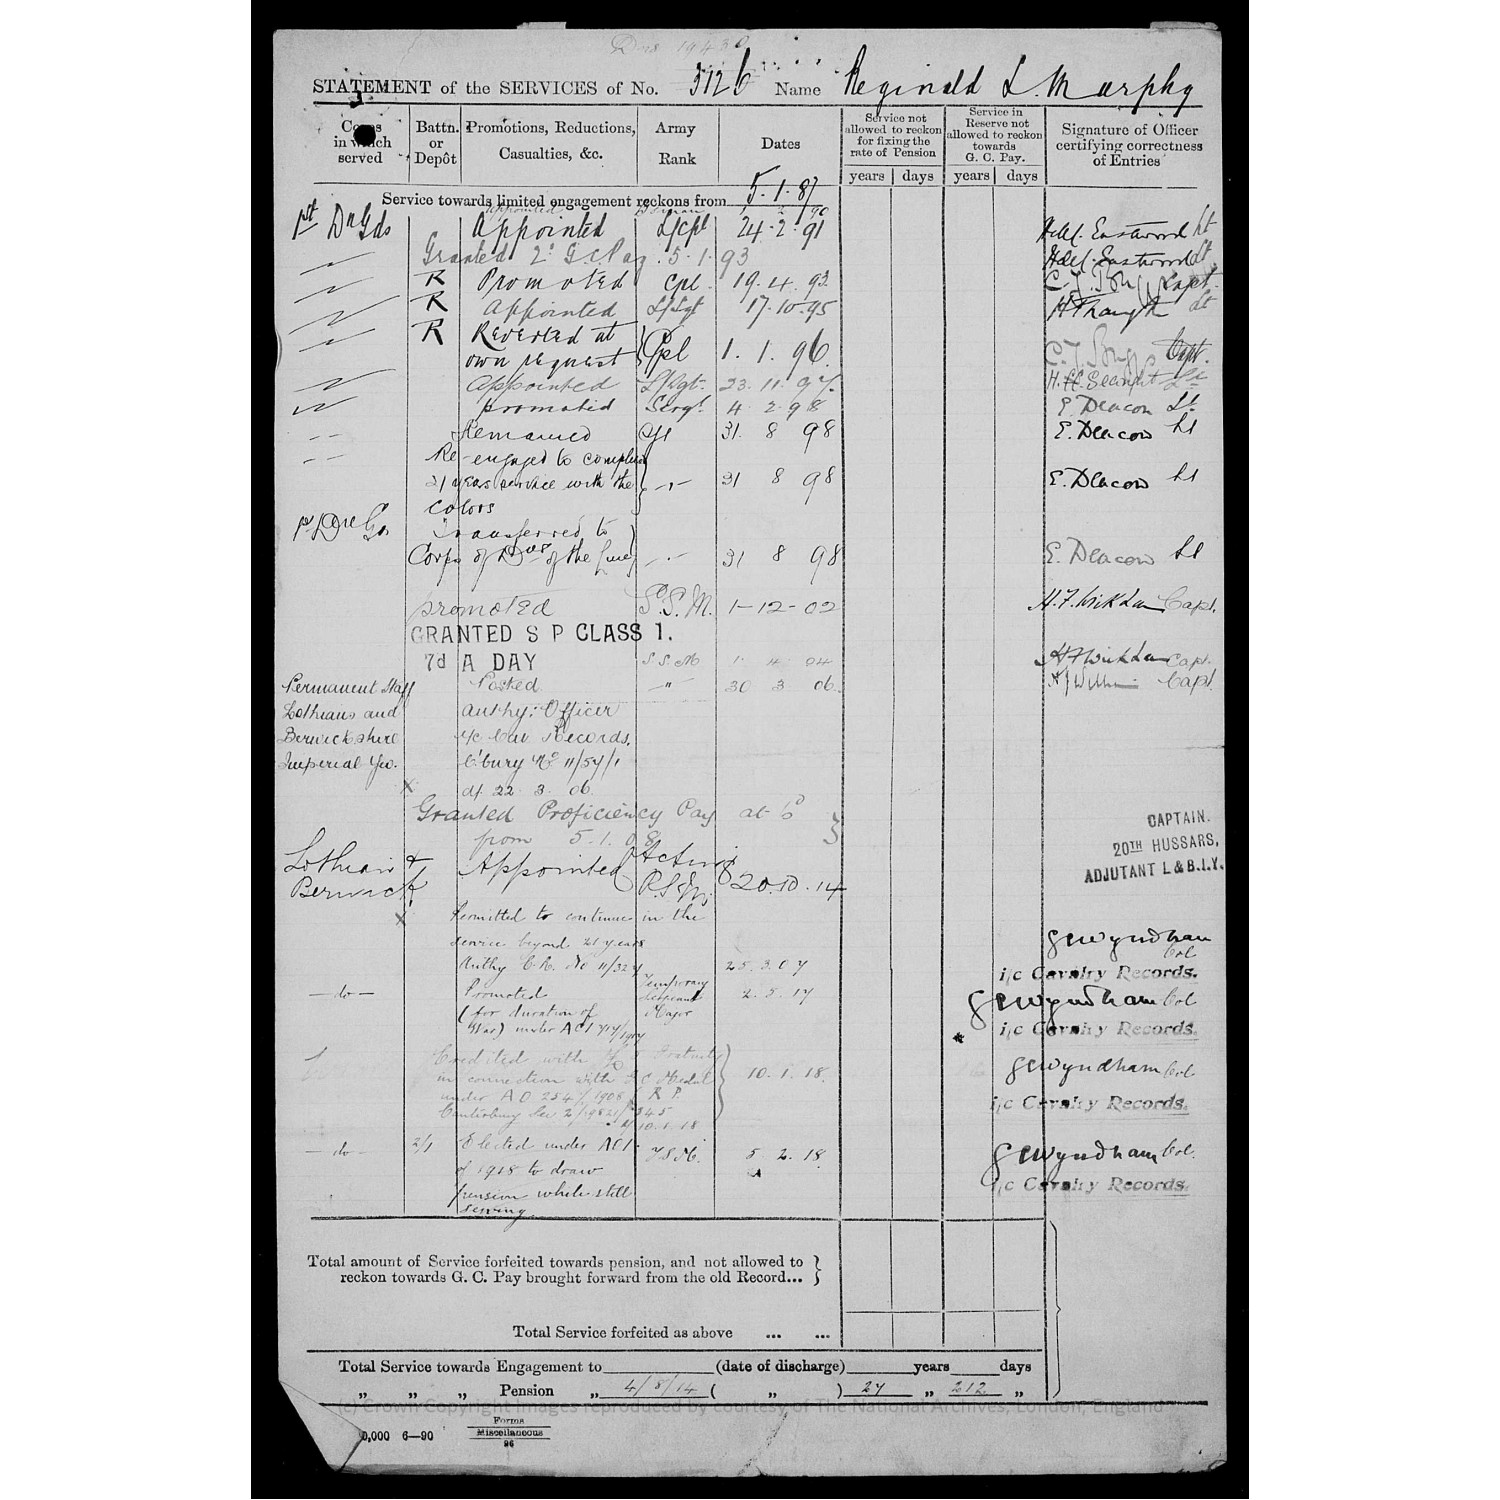 STATEMENT of the SERVICES of No. 3126 Name Reginald L. Murphy
Corps in which served
Battn. or Depôt
Promotions, Reductions, Casualties, &c.
Army Rank
Dates
Service not allowed to reckon for fixing the rate of Pension
years days
Service in Reserve not allowed to reckon towards G. C. Pay.
years days
Signature of Officer certifying correctness of Entries
Service towards limited engagement reckons from 5.1.87
appointed
1st Dn Gds Appointed L/Cpl 24.2.91 Eastwood Lt
Granted 2d G.C. Pay. 5.1.93 Eastwood Lt
R Promoted Cpl 19.4.93 Capt.
R Appointed L/Sgt 17.10.95 Lt
R Reverted at
own request Cpl 1.1.96 Capt.
Appointed L/Sgt. 23.11.97
promoted Sergt. 4.2.98 E. Deacon Lt
31 8 98 E. Deacon Lt
Re-engaged to complete
21 years service with the 31 8 98 E. Deacon Lt
Colors
Transferred to
Corps of Dns of the Line 31 8 98 E. Deacon Lt
promoted S.S.M. 1-12-02 Capt.
GRANTED S P CLASS 1.
7d A DAY S.S.M 1. 4 04 Capt.
Permanent Staff Posted " 30 3 06. Capt.
Lothians and Authy: Officer
Berwickshire i/c Cav Records.
Imperial Yeo. C'bury No 11/54/1
x dt 22. 3. 06
Granted Proficiency Pay at 6d
from 5.1.08
CAPTAIN.
20TH HUSSARS,
ADJUTANT L & B.I.Y.
Lothian & Appointed Acting
Berwick R.S.M. 20.10.14
x Permitted to continue in the
service beyond 21 years
Authy C.R. No 11/324 25.3.07
GCWyndham Col
i/c Cavalry Records.
-do- Promoted Temporary Sergeant Major 2.5.17
(for duration of
War) under ACI
GCWyndham Col
i/c Cavalry Records.
Credited with Gratuity
in connection with G C Medal 10.1.18.
under A O 254/1908 R P.
10.1.18
GCWyndham Col
i/c Cavalry Records.
-do- 2/1 Elected under ACI T.S.M. 5.2.18
of 1918 to draw
pension while still
serving
GCWyndham Col.
i/c Cavalry Records.
Total amount of Service forfeited towards pension, and not allowed to
reckon towards G. C. Pay brought forward from the old Record...
Total Service forfeited as above ... ...
Total Service towards Engagement to (date of discharge) years days
„ „ „ Pension „ 4/8/14 ( „ ) 27 „ 212 „
(c) Crown Copyright Images reproduced by courtesy of The National Archives, London, England
0,000 6—90
Forms
Miscellaneous
96